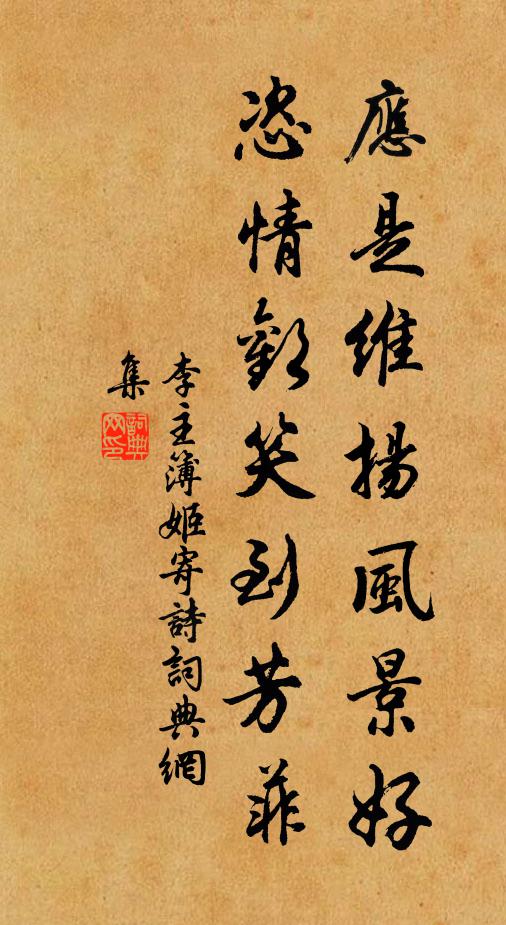 應是維揚風景好
恣情歡笑到芳菲
李主簿姬寄詩詞典網
集
詞典網印